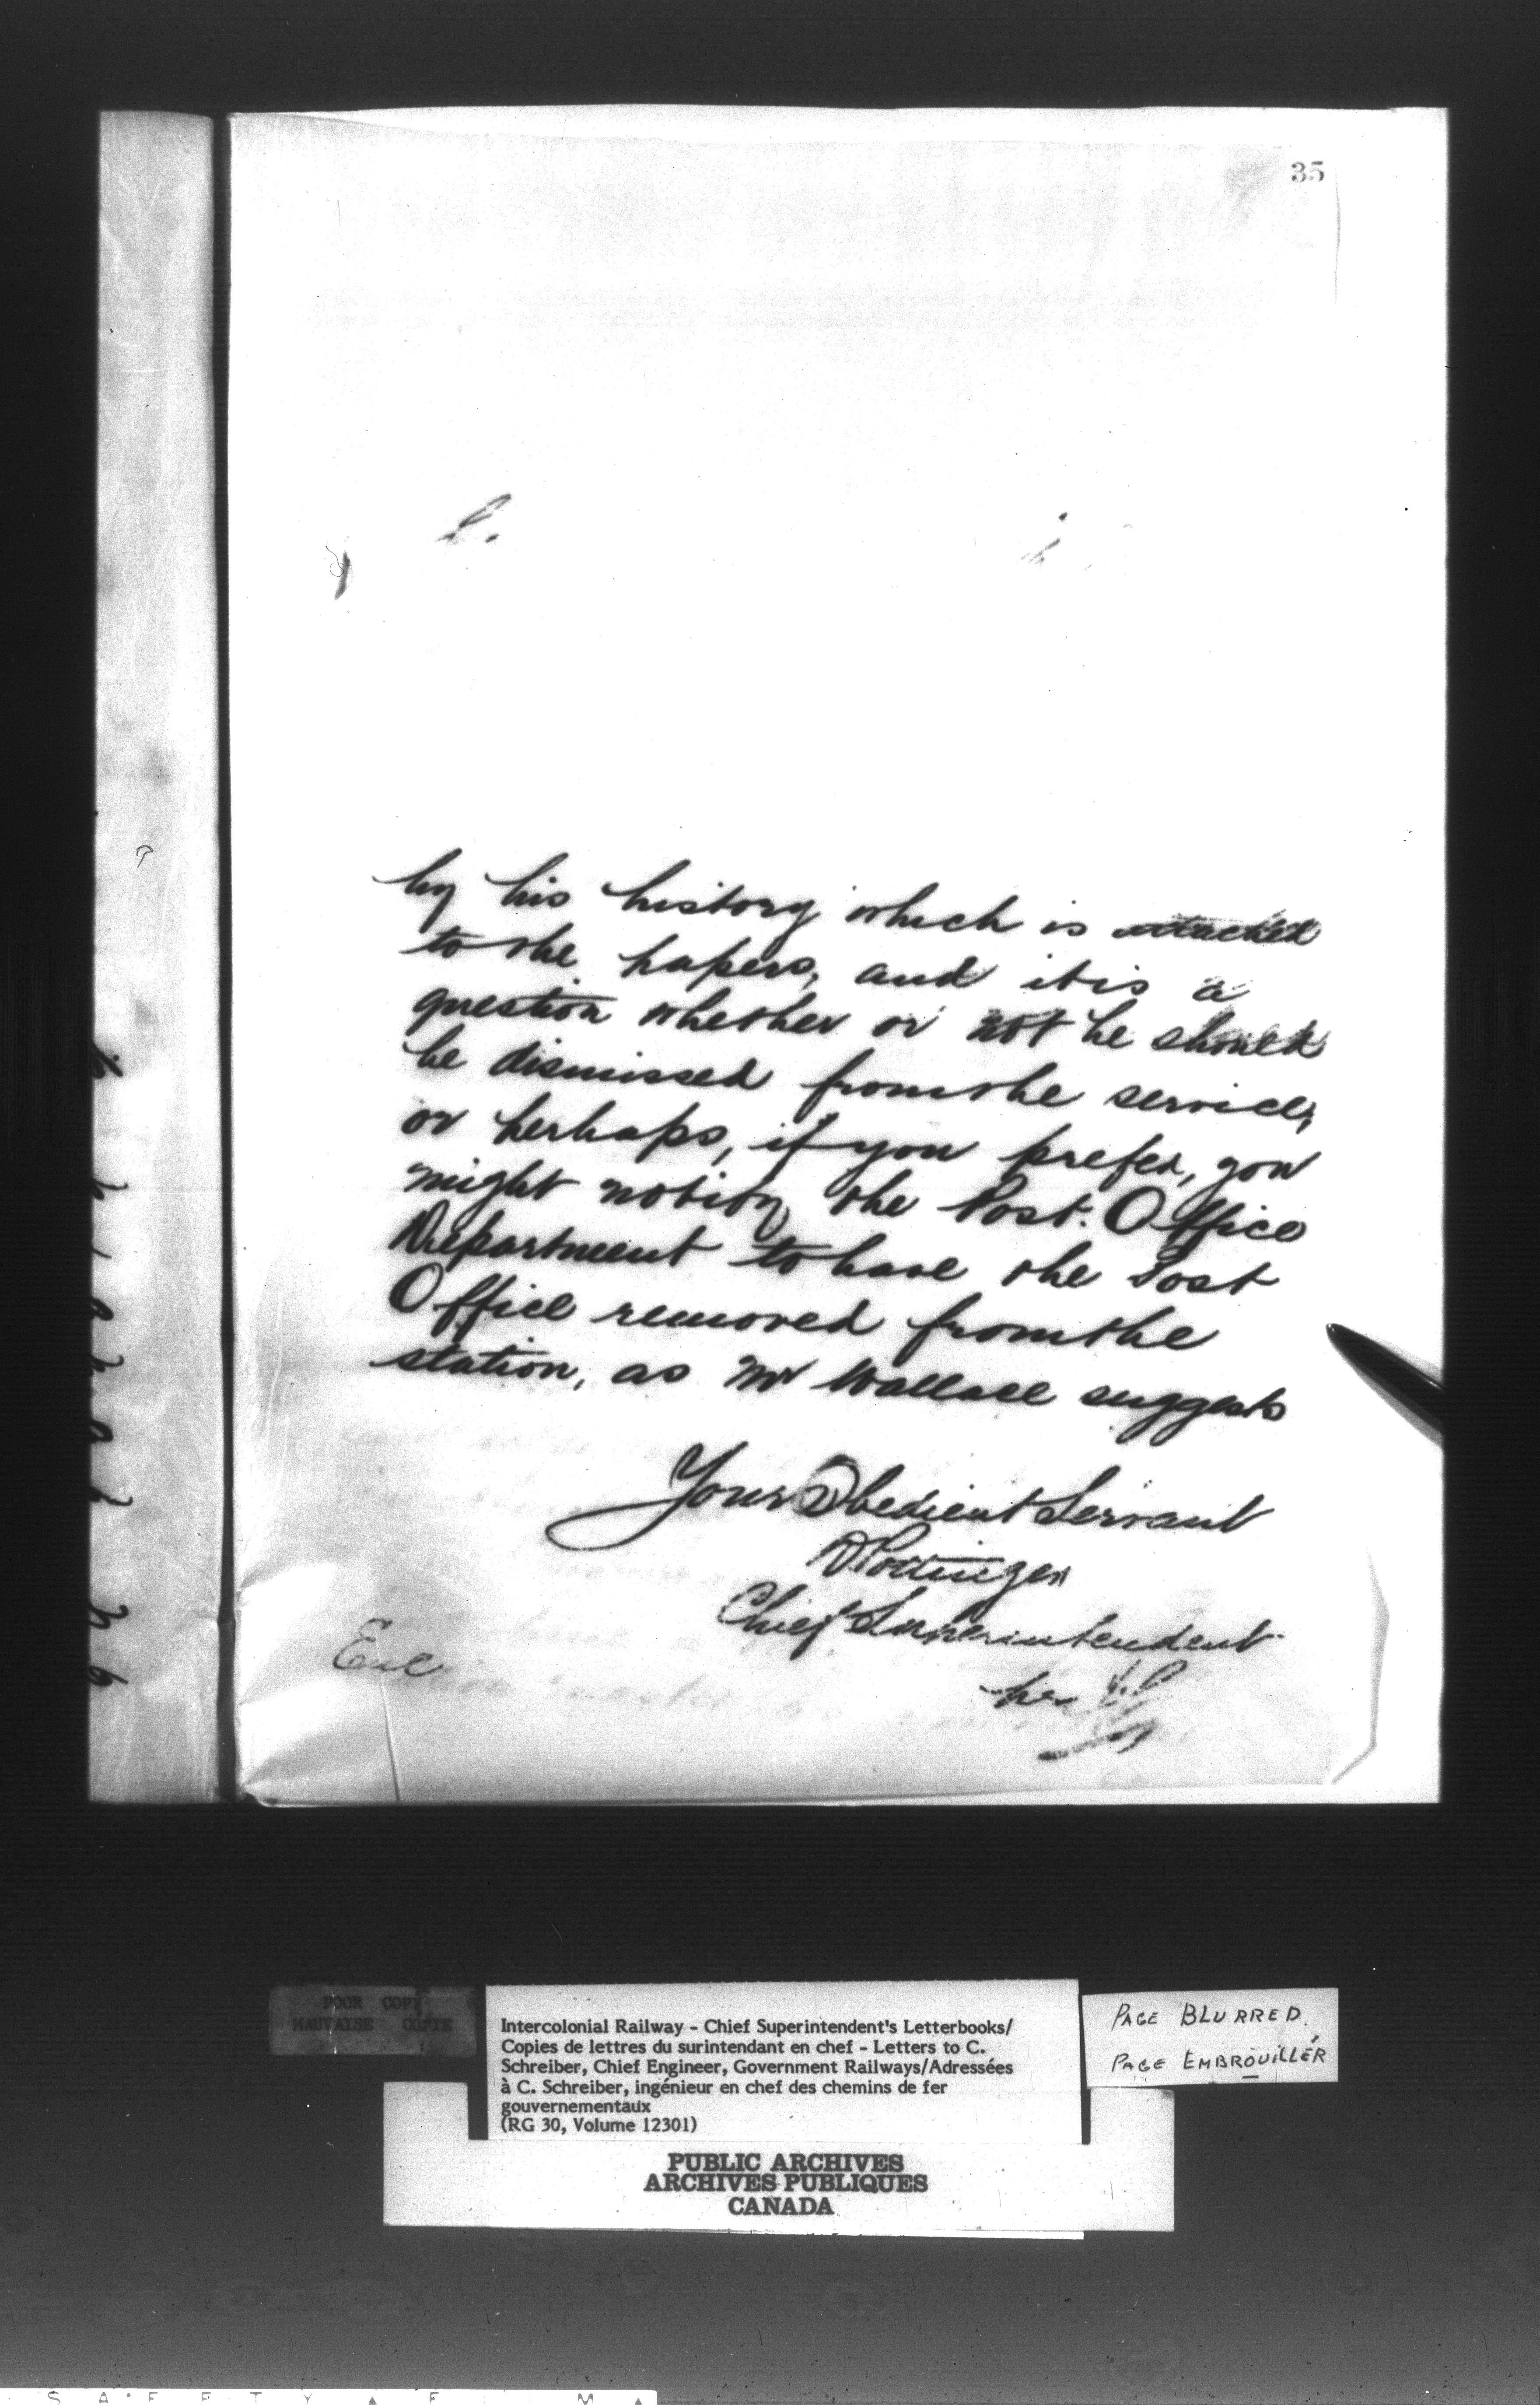 35
by his history which is attached
to the papers, and it is a
question whether or not he should
be dismissed from the service,
or perhaps, if you prefer, you
might notify the Post. Office
Department to have the Post
Office removed from the
station, as Mr Wallace suggests
Your Obedient Servant
D Pottinger
Chief Superintendent
per
Encl
POOR COPY
MAUVAISE COPIE
Intercolonial Railway - Chief Superintendent's Letterbooks/
Copies de lettres du surintendant en chef - Letters to C.
Schreiber, Chief Engineer, Government Railways/Adressées
à C. Schreiber, ingénieur en chef des chemins de fer
gouvernementaux
(RG 30, Volume 12301)
PAGE BLURRED.
PAGE EMBROUILLÉR
PUBLIC ARCHIVES
ARCHIVES PUBLIQUES
CANADA